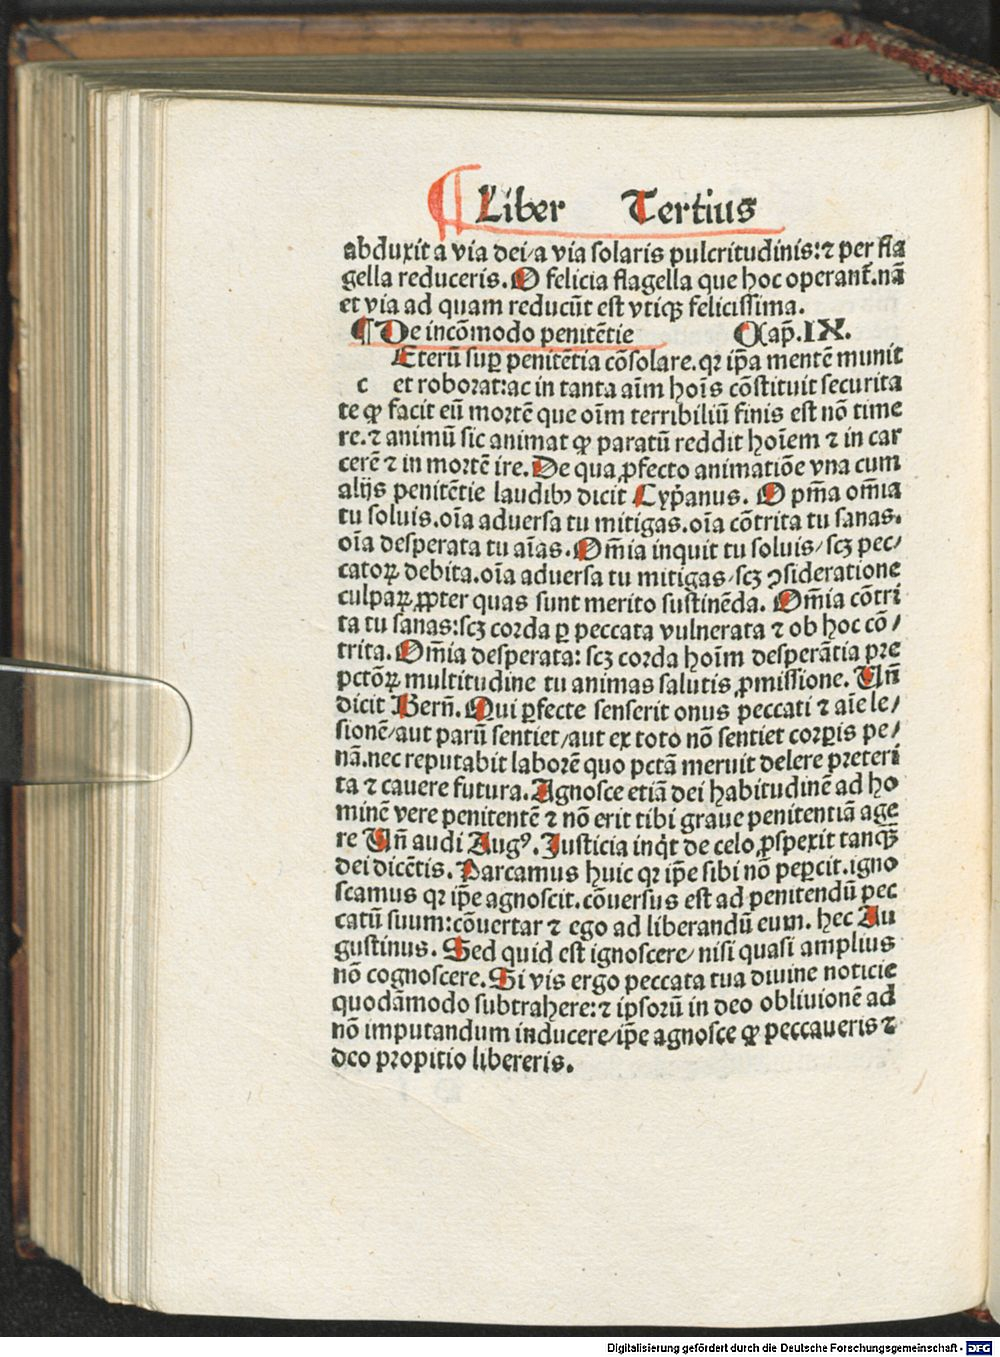 Liber Tertius
abduxit a via dei/a via solaris pulcritudinis:⁊ per fla
gella reduceris. O felicia flagella que hoc operant̃.nā
et via ad quam reducūt est vtiqꝫ felicissima.
¶ De incōmodo penitētie Cap̃.IX.
Eterū suꝑ penitētia cōsolare.qꝛ ip̃a mentē munit
c et roborat:ac in tanta aīm hoīs cōstituit securita
te ꝙ facit eū mortē que oīm terribiliū finis est nō time
re.⁊ animū sic animat ꝙ paratū reddit hoīem ⁊ in car
cerē ⁊ in mortē ire. De qua ꝓfecto animatiōe vna cum
alijs penitētie laudibꝫ dicit Cyp̃anus. O pm̃a om̃ia
tu soluis.oīa aduersa tu mitigas.oīa cōtrita tu sanas.
oīa desperata tu aīas. Om̃ia inquit tu soluis/scꝫ pec/
catoꝝ debita.oīa aduersa tu mitigas/scꝫ ꝯsideratione
culpaꝝ ꝓpter quas sunt merito sustinēda. Om̃ia cōtri
ta tu sanas:scꝫ corda ꝑ peccata vulnerata ⁊ ob hoc cō/
trita. Om̃ia desperata: scꝫ corda hoīm desperātia pre
pctōꝝ multitudine tu animas salutis ꝓmissione. Vñ
dicit Berñ. Qui ꝑfecte senserit onus peccati ⁊ aīe le/
sionē/aut parū sentiet/aut ex toto nō sentiet corꝑis pe/
nā.nec reputabit laborē quo pctā meruit delere preteri
ta ⁊ cauere futura. Agnosce etiā dei habitudinē ad ho
minē vere penitentē ⁊ nō erit tibi graue penitentiā age
re Vñ audi Augꝰ. Iusticia inq̇t de celo ꝓspexit tanqꝫ̃
dei dicētis. Parcamus huic qꝛ ip̃e sibi nō peꝑcit.igno
scamus qꝛ ip̃e agnoscit.cōuersus est ad penitendū pec
catū suum:cōuertar ⁊ ego ad liberandū eum. hec Au
gustinus. Sed quid est ignoscere/nisi quasi amplius
nō cognoscere. Si vis ergo peccata tua diuine noticie
quodāmodo subtrahere:⁊ ipsorū in deo obliuionē ad
nō imputandum inducere/ip̃e agnosce ꝙ peccaueris ⁊
deo propitio libereris.
Digitalisierung gefördert durch die Deutsche Forschungsgemeinschaft - DFG